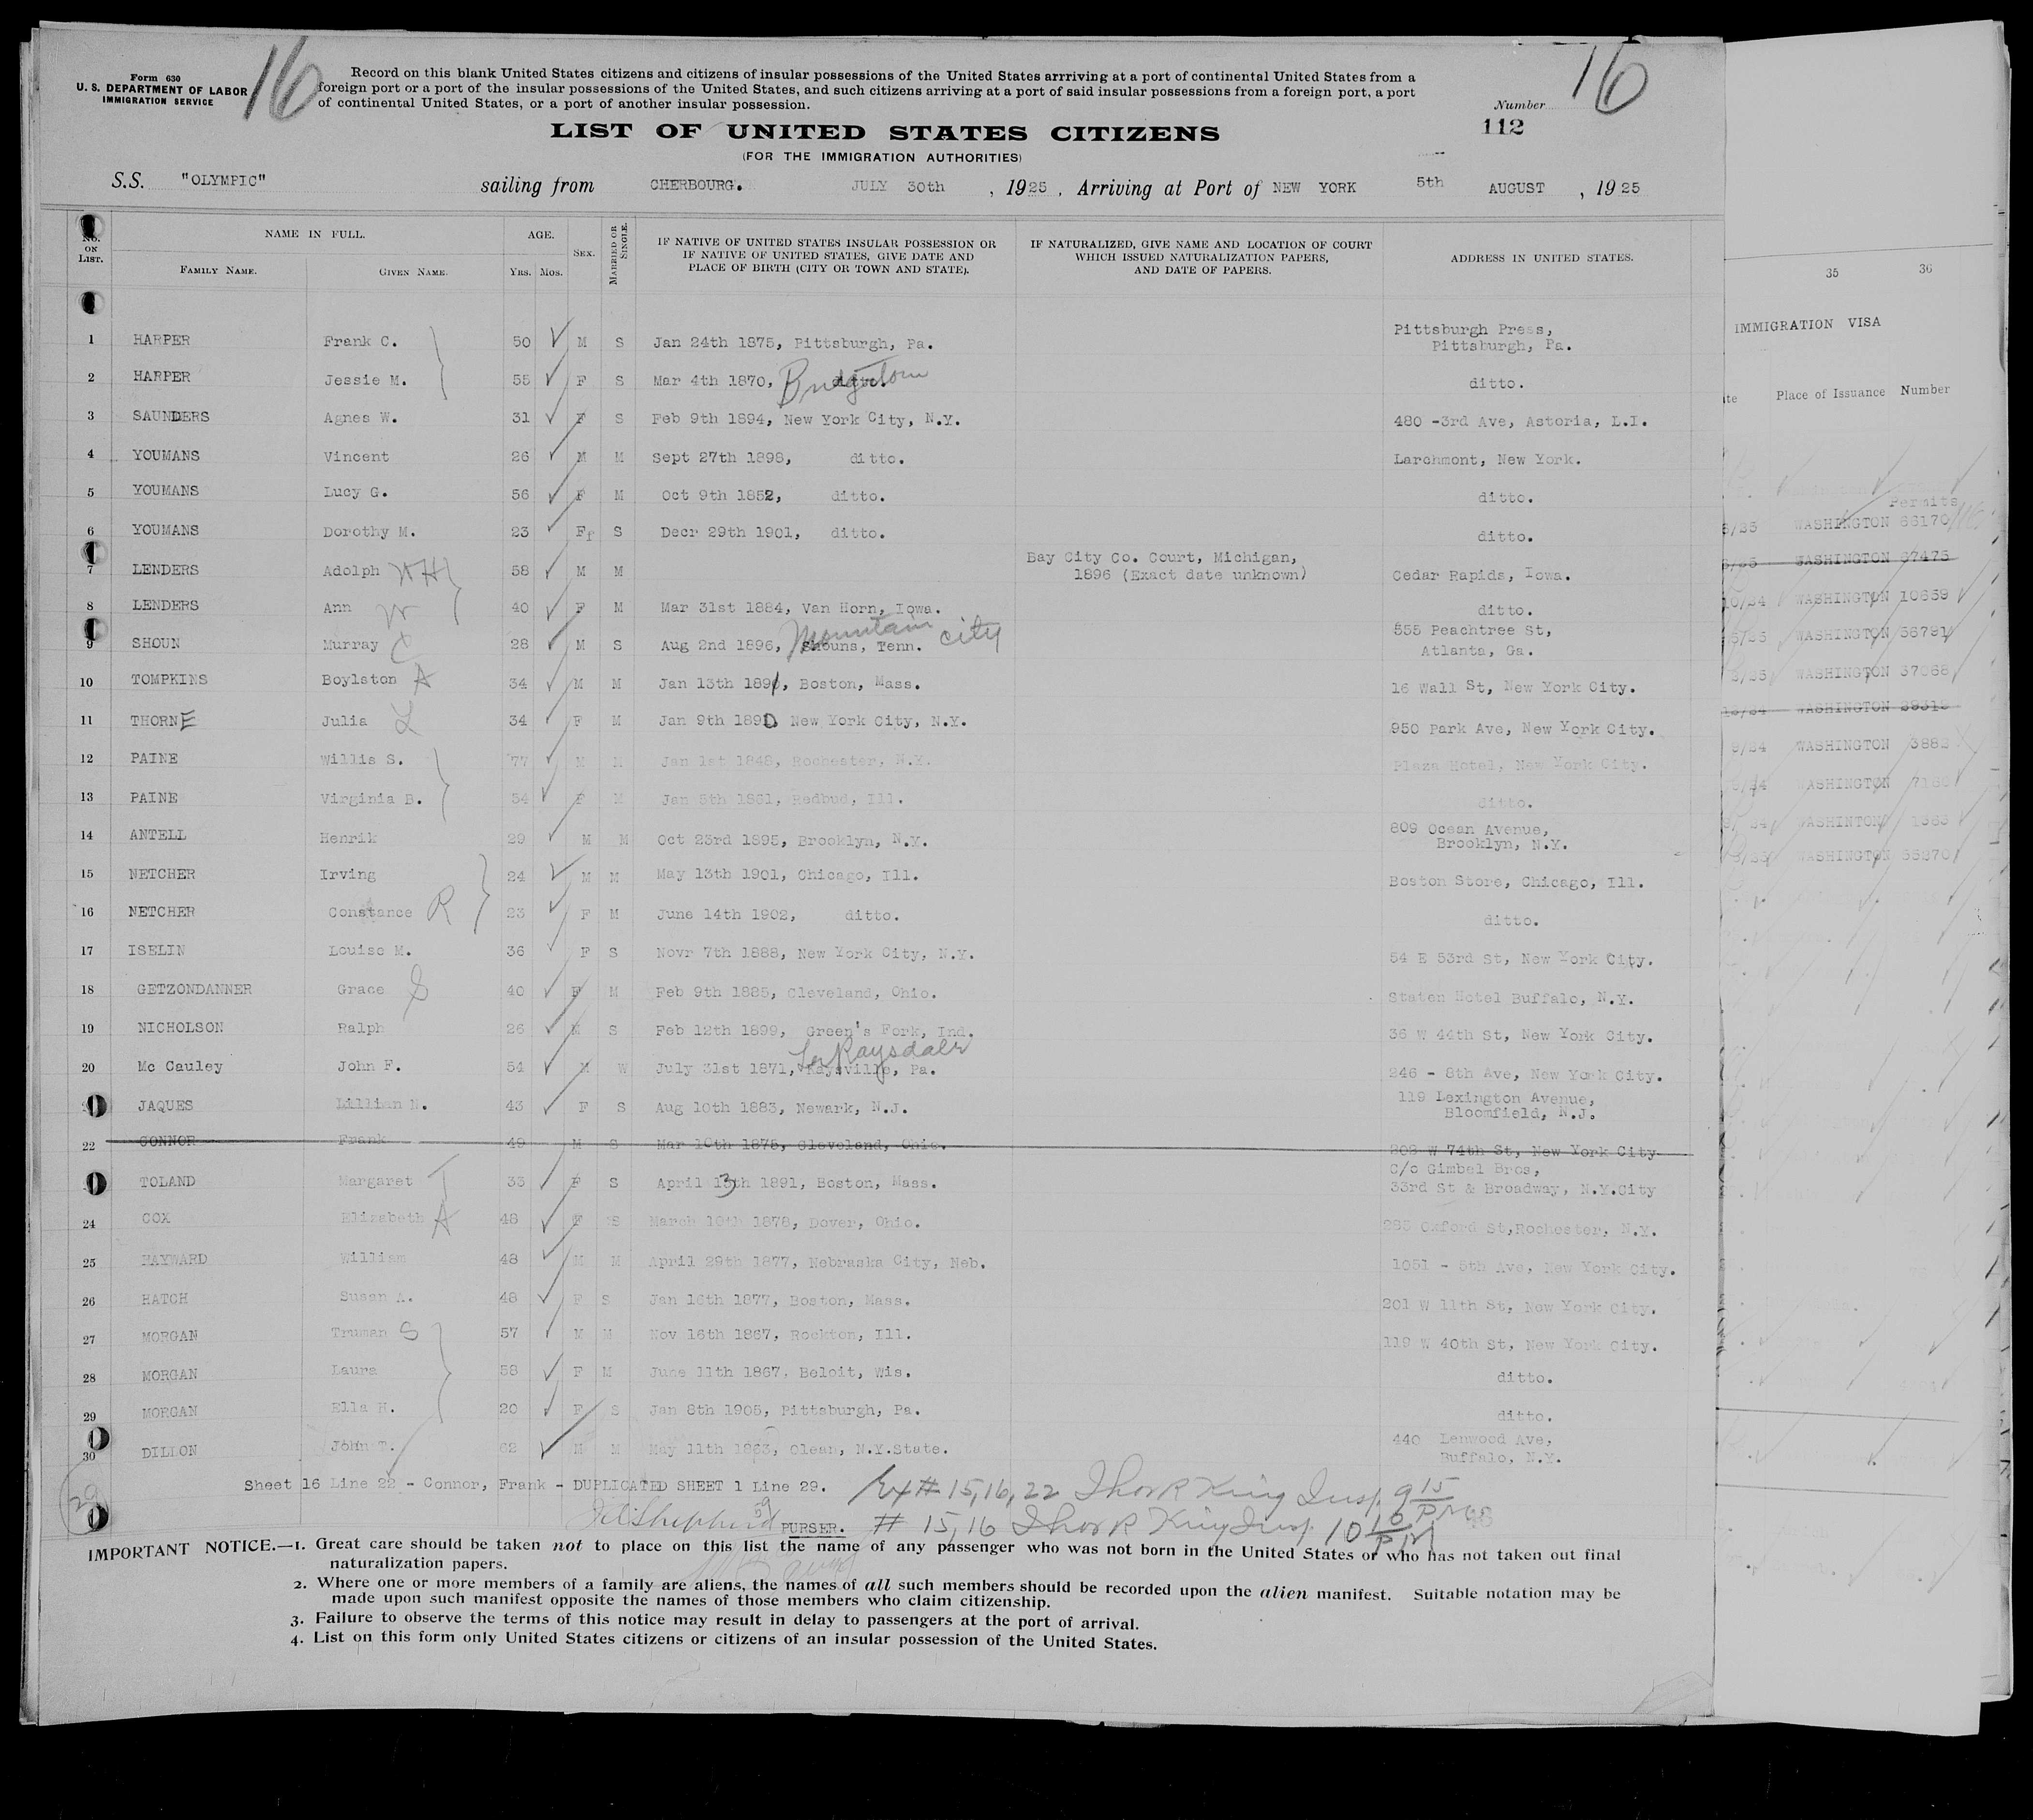 16
16
Form 630
U. S. DEPARTMENT OF LABOR
IMMIGRATION SERVICE
Record on this blank United States citizens and citizens of insular possessions of the United States arrriving at a port of continental United States from a
foreign port or a port of the insular possessions of the United States, and such citizens arriving at a port of said insular possessions from a foreign port, a port
of continental United States, or a port of another insular possession.
Number
112
LIST OF UNITED STATES CITIZENS
(FOR THE IMMIGRATION AUTHORITIES)
S.S. "OLYMPIC" sailing from CHERBOURG. JULY 30th , 1925 , Arriving at Port of NEW YORK 5th AUGUST , 1925
No. ON LIST.
NAME IN FULL.
FAMILY NAME. GIVEN NAME.
AGE.
YRS. MOS.
SEX.
MARRIED OR SINGLE.
IF NATIVE OF UNITED STATES INSULAR POSSESSION OR
IF NATIVE OF UNITED STATES, GIVE DATE AND
PLACE OF BIRTH (CITY OR TOWN AND STATE).
IF NATURALIZED, GIVE NAME AND LOCATION OF COURT
WHICH ISSUED NATURALIZATION PAPERS,
AND DATE OF PAPERS.
ADDRESS IN UNITED STATES.
35 36
IMMIGRATION VISA
Place of Issuance Number
1 HARPER Frank C. 50 M S Jan 24th 1875, Pittsburgh, Pa. Pittsburgh Press,
Pittsburgh, Pa.
2 HARPER Jessie M. 55 F S Mar 4th 1870, ditto.
3 SAUNDERS Agnes W. 31 F S Feb 9th 1894, New York City, N.Y. 480 -3rd Ave, Astoria, L.I.
4 YOUMANS Vincent 26 M M Sept 27th 1898, ditto. Larchmont, New York.
5 YOUMANS Lucy G. 56 F M Oct 9th 1852, ditto. ditto.
Permits
6 YOUMANS Dorothy M. 23 F S Decr 29th 1901, ditto. ditto.
WASHINGTON 66170
7 LENDERS Adolph WH 58 M M Bay City Co. Court, Michigan,
1896 (Exact date unknown) Cedar Rapids, Iowa.
WASHINGTON 67475
8 LENDERS Ann W 40 F M Mar 31st 1884, Van Horn, Iowa. ditto.
WASHINGTON 10659
Mountain City
9 SHOUN Murray C 28 M S Aug 2nd 1896, Shouns, Tenn. 555 Peachtree St,
Atlanta, Ga.
WASHINGTON 56791
10 TOMPKINS Boylston A 34 M M Jan 13th 1891, Boston, Mass. 16 Wall St, New York City.
WASHINGTON 37068
11 THORNE Julia L 34 F M Jan 9th 1890 New York City, N.Y. 950 Park Ave, New York City.
12 PAINE Willis S. 77 M M Jan 1st 1848, Rochester, N.Y. Plaza Hotel, New York City.
WASHINGTON
13 PAINE Virginia B. F M Jan 5th Redbud, Ill. ditto.
WASHINGTON
14 ANTELL Henrik 29 M M Oct 23rd 1895, Brooklyn, N.Y. 809 Ocean Avenue,
Brooklyn, N.Y.
WASHINTON
15 NETCHER Irving 24 M M May 13th 1901, Chicago, Ill. Boston Store, Chicago, Ill.
WASHINGTON
16 NETCHER Constance R 23 F M June 14th 1902, ditto. ditto.
17 ISELIN Louise M. 36 F S Novr 7th 1888, New York City, N.Y. 54 E 53rd St, New York City.
18 GETZONDANNER Grace S 40 F M Feb 9th 1885, Cleveland, Ohio. Staten Hotel Buffalo, N.Y.
19 NICHOLSON Ralph 26 M S Feb 12th 1899, Green's Fork, Ind. 36 W 44th St, New York City.
20 Mc Cauley John F. 54 M W July 31st 1871, Pa. 246 - 8th Ave, New York City.
JAQUES Lillian N. 43 F S Aug 10th 1883, Newark, N.J. 119 Lexington Avenue,
Bloomfield, N.J.
22 CONNOR Frank 49 M S Mar 10th 1875, Cleveland, Ohio. W 74th St, New York City
TOLAND Margaret T 33 F S April 13th 1891, Boston, Mass. C/o Gimbel Bros,
33rd St & Broadway, N.Y.City
24 COX Elizabeth A 48 F S March 10th 1878, Dover, Ohio. 285 Oxford St,Rochester, N.Y.
25 HAYWARD William 48 M M April 29th 1877, Nebraska City, Neb. 1051 - 5th Ave, New York City.
26 HATCH Susan A. 48 F S Jan 16th 1877, Boston, Mass. 201 W 11th St, New York City.
27 MORGAN Truman S 57 M M Nov 16th 1867, Rockton, Ill. 119 W 40th St, New York City.
28 MORGAN Laura 58 F M June 11th 1867, Beloit, Wis. ditto.
29 MORGAN Ella H. 20 F S Jan 8th 1905, Pittsburgh, Pa. ditto.
30 DILLON John T. 62 M M May 11th 1863, Olean, N.Y.State. 440 Lenwood Ave,
Buffalo, N.Y.
Sheet 16 Line 22 - Connor, Frank - DUPLICATED SHEET 1 Line 29. Ex # 15,16,22 Thos R King Insp. 9 15 PM
PURSER. # 15,16 Thos R King Insp. 10 10 PM
IMPORTANT NOTICE.—1. Great care should be taken not to place on this list the name of any passenger who was not born in the United States or who has not taken out final
naturalization papers.
2. Where one or more members of a family are aliens, the names of all such members should be recorded upon the alien manifest. Suitable notation may be
made upon such manifest opposite the names of those members who claim citizenship.
3. Failure to observe the terms of this notice may result in delay to passengers at the port of arrival.
4. List on this form only United States citizens or citizens of an insular possession of the United States.